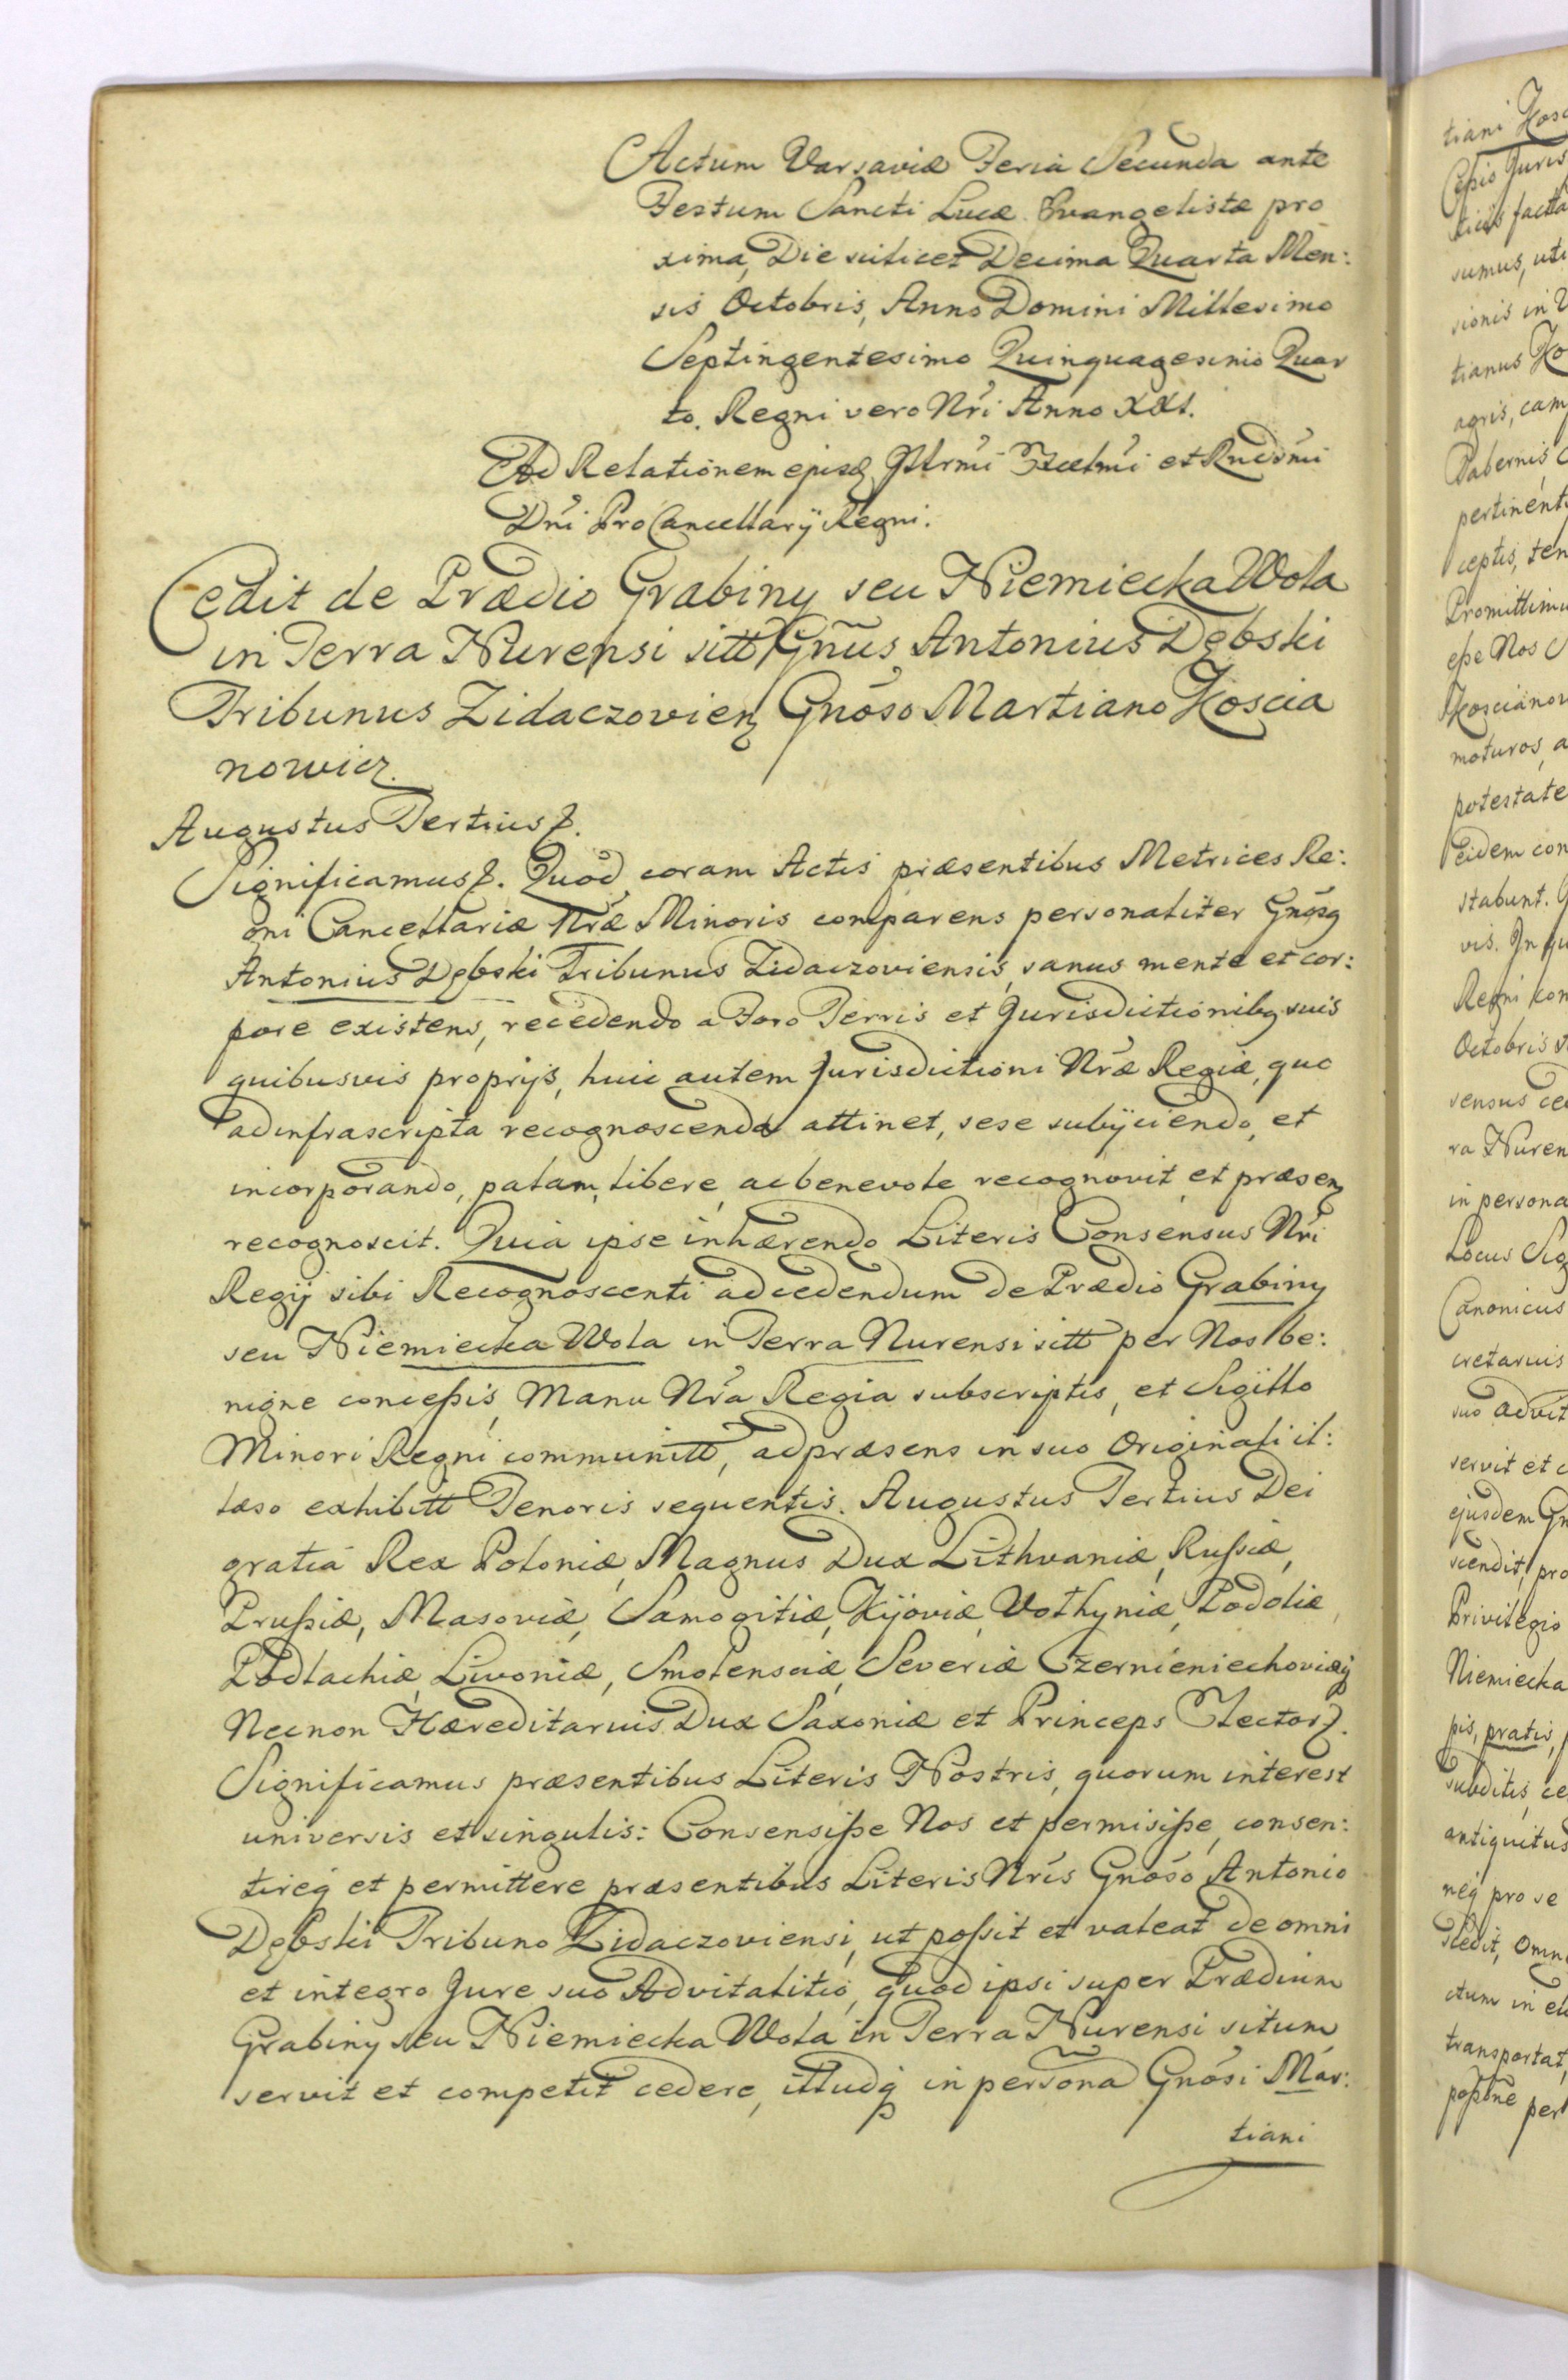 Actum Varsaviæ Feria Secunda ante
Festum Sancti Lucæ Evangelistæ pro
xima, Die scilicet Decima Quarta Men:
sis Octobris, Anno Domini Millesimo
Septingentesimo Quinquagesimo Quar
to. Regni vero Nri Anno XXI.
Ad Relationem ejusd Illrmi Excelmi et Rndsmi
Dni ProCancellarij Regni.
Cedit de Prædio Grabiny seu Niemiecka Wola
in Terra Nurensi sitt Gnus Antonius Dębski
Tribunus Zidaczovien Gnoso Martiano Koscia
nowicz.
Augustus Tertius
Significamus. Quod coram Actis præsentibus Metrices Re:
gni Cancellariæ Nræ Minoris comparens personaliter Gnosg
Antonius Dębski Tribunus Zidaczoviensis, sanus mente et cor:
pore existens, recedendo a Foro Terris et Jurisdictionibg suis
quibusvis proprijs, huic autem Jurisdictioni Nræ Regiæ, quo
ad infrascripta recognoscenda attinet, sese subijciendo, et
incorporando, palam, libere, ac benevole recognovit, et præsen
recognoscit. Quia ipse inhærendo Literis Consensus Nri
Regij sibi Recognoscenti ad cedendum de Prædio Grabiny
seu Niemiecka Wola in Terra Nurensi sitt per Nos be:
nigne concessis, Manu Nra Regia subscriptis, et Sigillo
Minori Regni communitt, ad præsens in suo Originali il:
læso exhibitt Tenoris sequentis. Augustus Tertius Dei
gratia Rex Poloniæ, Magnus Dux Lithvaniæ, Russiæ,
Prussiæ, Masoviæ, Samogitiæ, Kijoviæ, Volhyniæ, Podoliæ,
Podlachiæ, Livoniæ, Smolensciæ, Severiæ Czernieniechoviæq
Necnon Hæreditarius Dux Saxoniæ et Princeps Elector.
Significamus præsentibus Literis Nostris, quorum interest
universis et singulis: Consensisse Nos et permisisse, consen:
tireq et permittere præsentibus Literis Nris Gnoso Antonio
Dębski Tribuno Zidaczoviensi, ut possit et valeat de omni
et integro Jure suo Advitalitio, quod ipsi super Prædium
Grabiny seu Niemiecka Wola in Terra Nurensi situm
servit et competit cedere, illudq in persona Gnosi Mar:
tiani
tiani Kosc
sumus, uti
sionis in
tianus Ko
agris, cam
Tabernis
pertinent
ceptis, ten
Promittimu
esse Nos
Koscianow
moturos, a
potestate
eidem con
stabunt.
vis. In
Regni
Octobris
sensus ce
ra Nuren
in persona
Locus Sig
Canonicus
cretarius
suo advit
servit et c
ejusdem Gn
scendit, pro
Privilegio
Niemiecka
pis, pratis,
subditis, ce
antiquitus
neq pro se
cedit, Omn
ctum in
transportat,